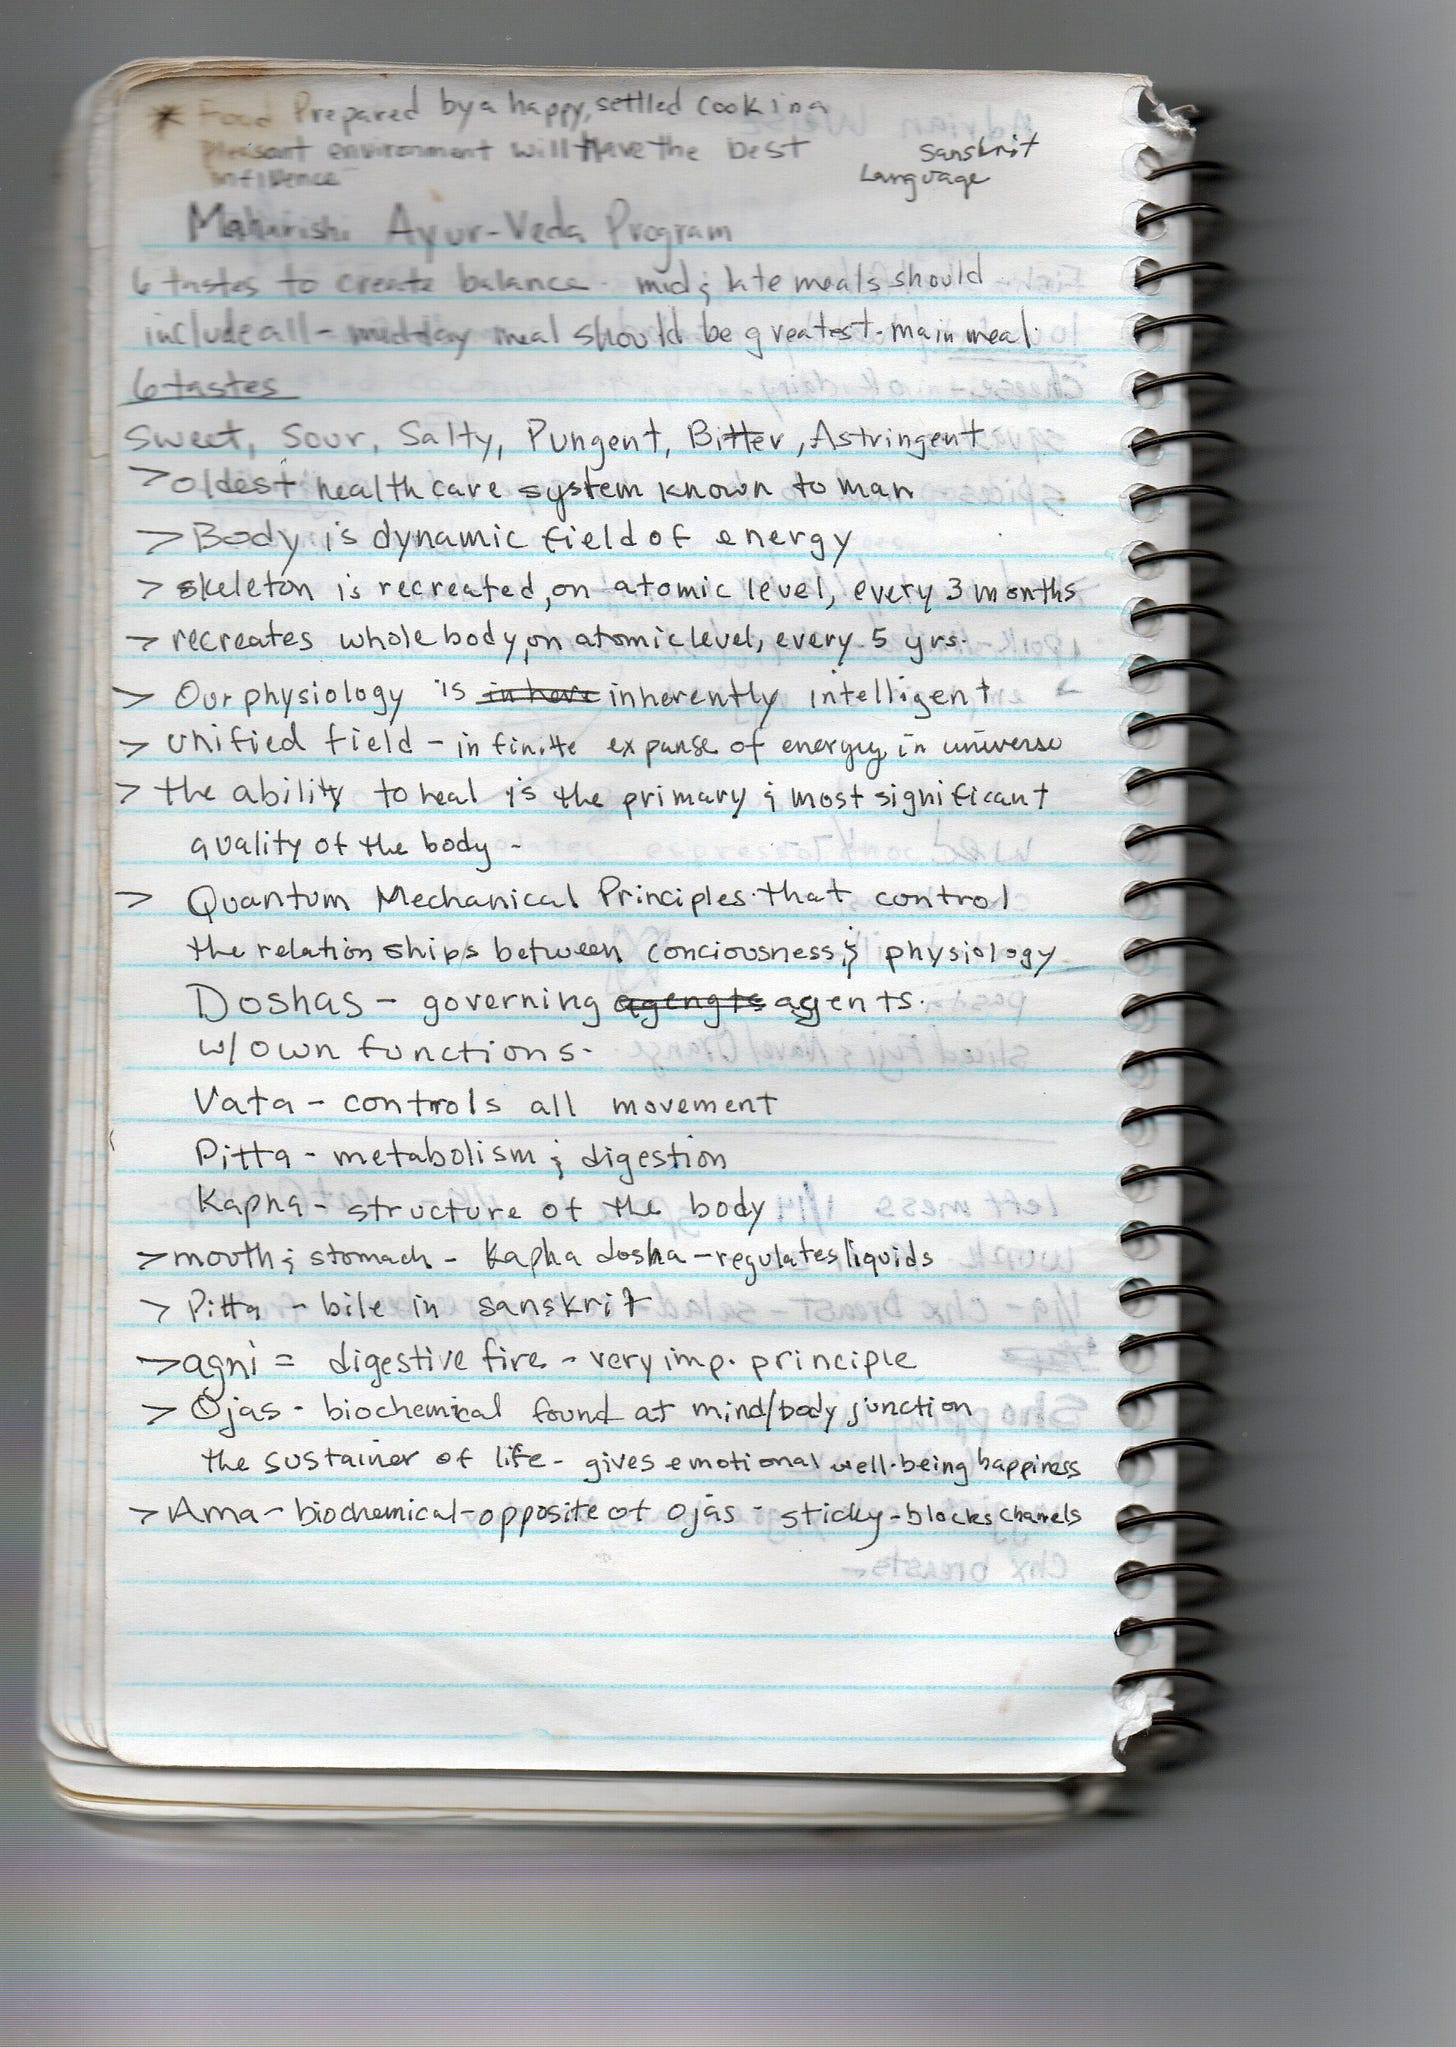 * Food Prepared by a happy, settled cook in a
pleasant environment will have the best
influence
Sanskrit
Language
Maharishi Ayur-Veda Program
6 tastes to create balance - mid & late meals should
include all - midday meal should be greatest - main meal.
6 tastes
Sweet, Sour, Salty, Pungent, Bitter, Astringent
> oldest health care system known to man
> Body is dynamic field of energy
> skeleton is recreated, on atomic level, every 3 months
> recreates whole body, on atomic level, every 5 yrs.
> Our physiology is inhere inherently intelligent
> unified field - infinite expanse of energy in universe
> the ability to heal is the primary & most significant
quality of the body -
> Quantum Mechanical Principles that control
the relationships between conciousness & physiology
Doshas - governing agengts agents.
w/ own functions.
Vata - controls all movement
Pitta - metabolism & digestion
Kapha - structure of the body
> mouth & stomach - Kapha dosha - regulates liquids
> Pitta - bile in sanskrit
> agni = digestive fire - very imp. principle
> Ojas - biochemical found at mind/body junction
the sustainer of life - gives emotional well-being happiness
> Ama - biochemical - opposite of ojas - sticky - blocks channels